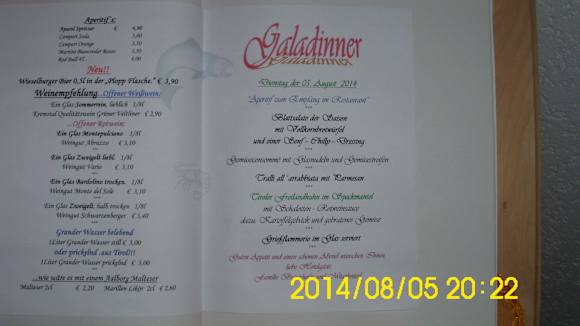 Aperitif's:
Aperol Spritzer € 4,90
Campari Soda 3,00
Campari Orange 3,70
Martini Bianco
Red Bull
Neu!!
Wieselburger Bier 0,5l in der „Plopp Flasche." € 3,90
Weinempfehlung...Offener Weißwein:
Ein Glas Sommerwein, lieblich 1/8l
Kremstal Qualitätswein Grüner Veltliner € 2,90
...Offener Rotwein:
Ein Glas Montepulciano 1/8l
Weingut Abruzzo € 3,10
***
Ein Glas Zweigelt liebl. 1/8l
Weingut Vario € 3,10
***
Ein Glas Bardolino trocken. 1/8l
Weingut Monte del Sole € 3,10
***
Ein Glas Zweigelt, halb trocken 1/8l
Weingut Schwartzenberger € 3,40
***
Grander Wasser belebend
1Liter Grander Wasser still € 3,00
oder prickelnd .aus Tirol!!
1Liter Grander Wasser prickelnd € 3,00
***
...wie wäre es mit einem Aalborg Malteser
Malteser 2cl € 2,20 Marillen Likör 2cl € 2,60
Galadinner
Dienstag der 05. August 2014
"Aperitif zum Empfang im Restaurant"
Blattsalate der Saison
mit Vollkornbrotwürfel
und einer Senf - Chilly - Dressing
***
Gemüseconsommé mit Glasnudeln und Gemüsestreifen
***
Tralli all'arrabbiata mit Parmesan
***
Tiroler Freilandhuhn im Speckmantel
mit Schalotten - Rotweinsauce
dazu Kartoffelgebäck und gebratenes Gemüse
***
Grießflammerie im Glas serviert
***
Guten Appetit und einen schönen Abend wünschen Ihnen
liebe Handgäste
Familie
2014/08/05 20:22